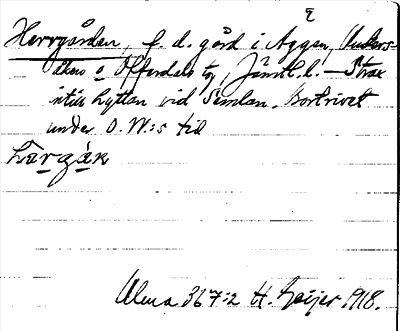 Herrgården, f. d. gård i Äggen, Unders-
åkers o Offerdals tg, Jämtl. l. – Strax
intill hyttan vid Semlan. Bortrivet
under O. W:s tid
hærgák
Ulma 367:2 H. Geijer 1918.